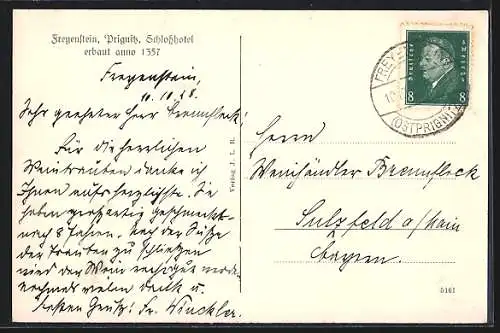 Freyenstein, Prignitz, Schloßhotel
erbaut anno 1357
Freyenstein,
10.10.28.
Sehr geehrter Herr Brennfleck!
Für die herrlichen
Weintrauben danke ich
Ihnen aufs herzlichste. Sie
haben großartig geschmeckt
nach 8 Jahren. Nach der Süße
der Trauben zu schließen
wird der Wein
nochmals vielen Dank u.
besten Gruß! Fr. Winckler.
Verlag J. L. R.
FREYENSTEIN
(OSTPRIGNITZ)
Deutsches Reich
8 8
Herrn
Weinhändler Brennfleck
Sulzfeld a/Main
Bayern.
5161